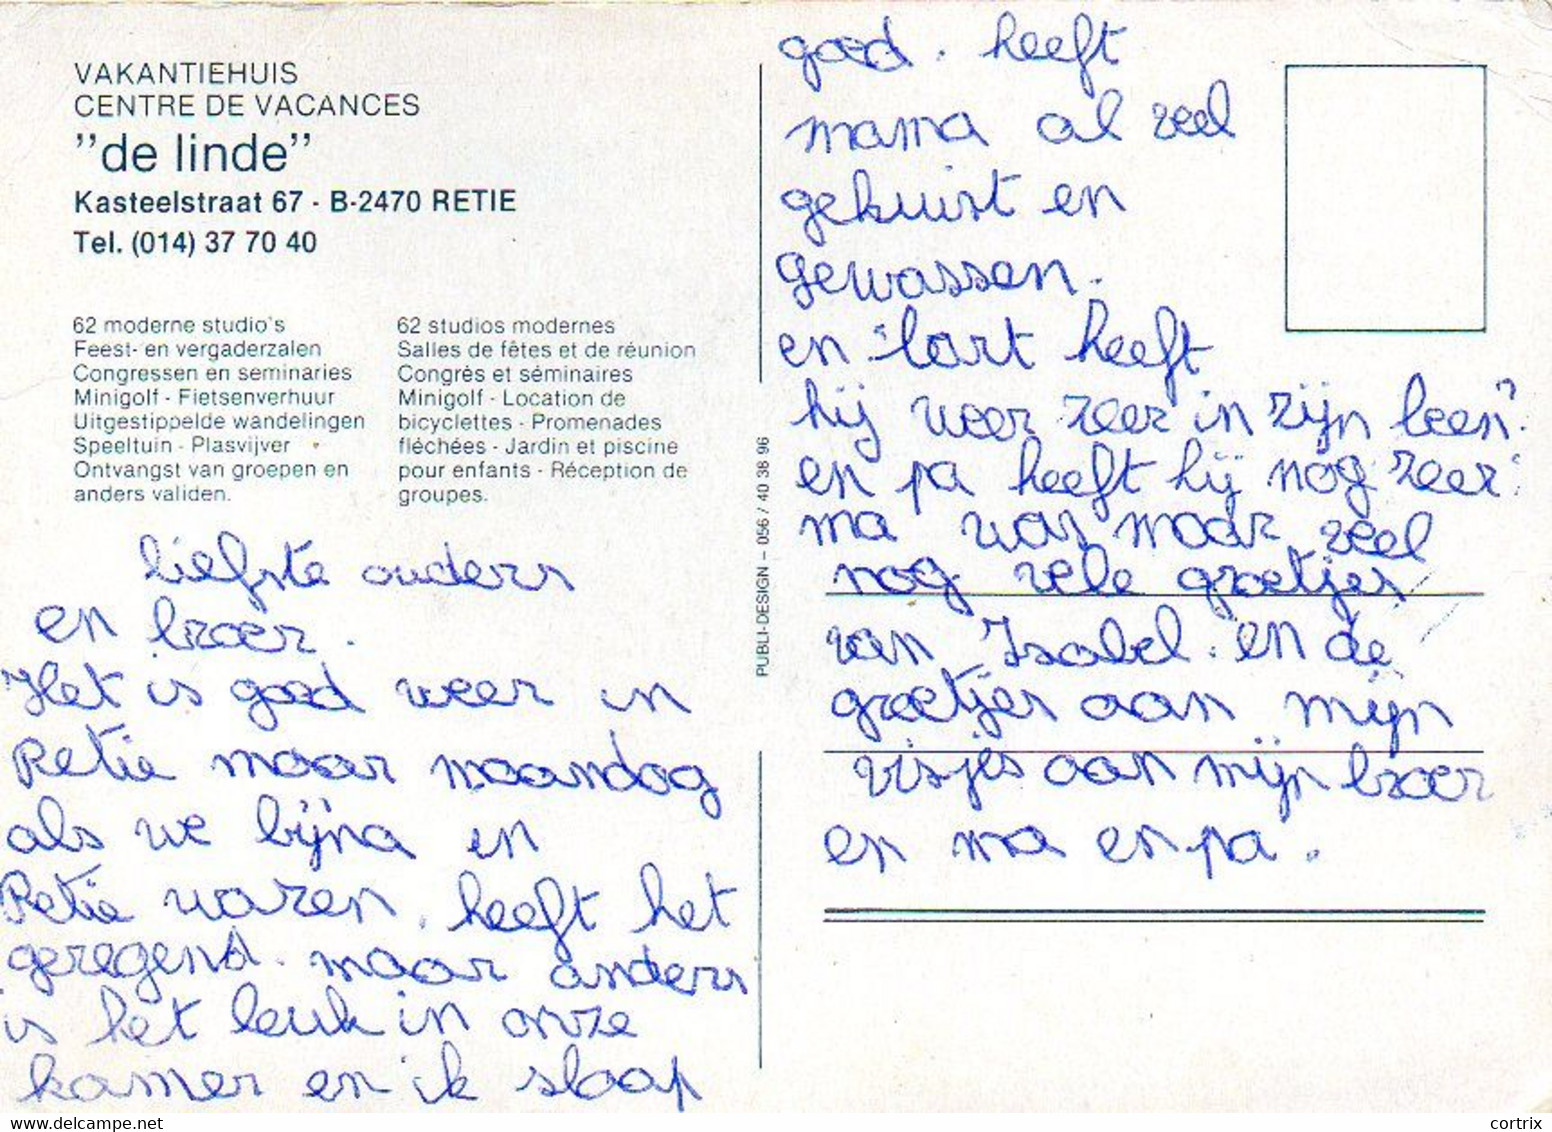 VAKANTIEHUIS
CENTRE DE VACANCES
"de linde"
Kasteelstraat 67 - B-2470 RETIE
Tel. (014) 37 70 40
62 moderne studio's
Feest- en vergaderzalen
Congressen en seminaries
Minigolf - Fietsenverhuur
Uitgestippelde wandelingen
Speeltuin - Plasvijver
Ontvangst van groepen en
anders validen.
62 studios modernes
Salles de fêtes et de réunion
Congrès et séminaires
Minigolf - Location de
bicyclettes - Promenades
fléchées - Jardin et piscine
pour enfants - Réception de
groupes.
PUBLI-DESIGN – 056 / 40 38 96
liefste ouders
en broer.
Het is goed weer in
Retie maar maandag
als we bijna in
Retie waren. heeft het
geregend. maar anders
is het leuk in onze
kamer en ik slaap
goed. heeft
mama al veel
gekuist en
gewassen.
en heeft
hij weer zeer in zijn been?
en pa heeft hij nog zeer:
ma was maar veel
nog vele groetjes
van Isabel. en de
groetjes aan mijn
visjes aan mijn broer
en ma en pa.
www.delcampe.net
cortrix